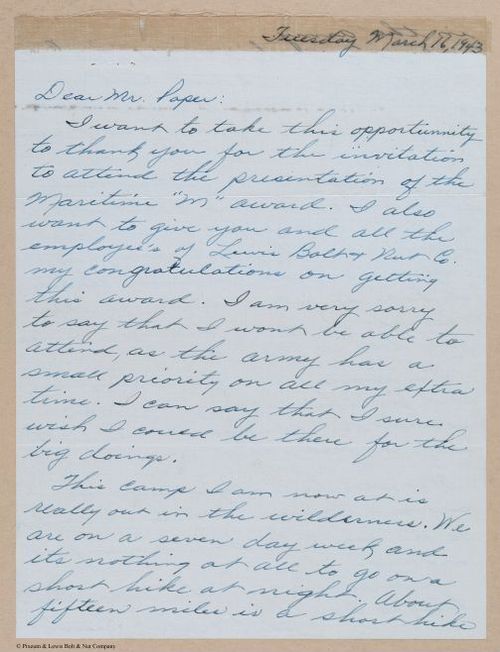 Tuesday March 16, 1943
Dear Mr. Paper:
I want to take this opportunnity
to thank you for the invitation
to attend the presentation of the
Maritime "M" award. I also
want to give you and all the
employee's of Lewis Bolt & Nut Co.
my congratulations on getting
this award. I am very sorry
to say that I wont be able to
attend, as the army has a
small priority on all my extra
time. I can say that I sure
wish I could be there for the
big doings.
This camp I am now at is
really out in the wilderness. We
are on a seven day week and
its nothing at all to go on a
short hike at night. About
fifteen miles is a short hike
© Pixeum & Lewis Bolt & Nut Company